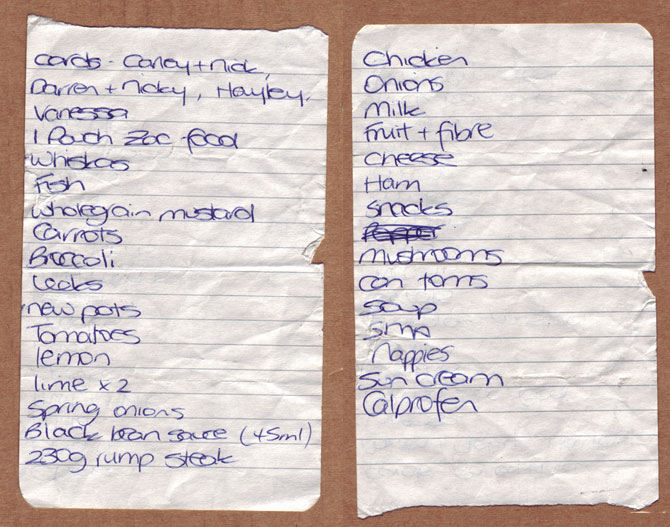 cards - Carley + nick,
Darren + nicky, Hayley,
Vanessa
1 Pouch Zac food
Whiskas
Fish
wholegrain mustard
Carrots
Broccoli
Leeks
new pots
Tomatoes
lemon
lime x 2
Spring onions
Black bean sauce (45ml)
230g rump steak
Chicken
Onions
Milk
Fruit + fibre
cheese
Ham
snacks
Pepper
mushrooms
can toms
soup
SMA
Nappies
Sun cream
Calprofen